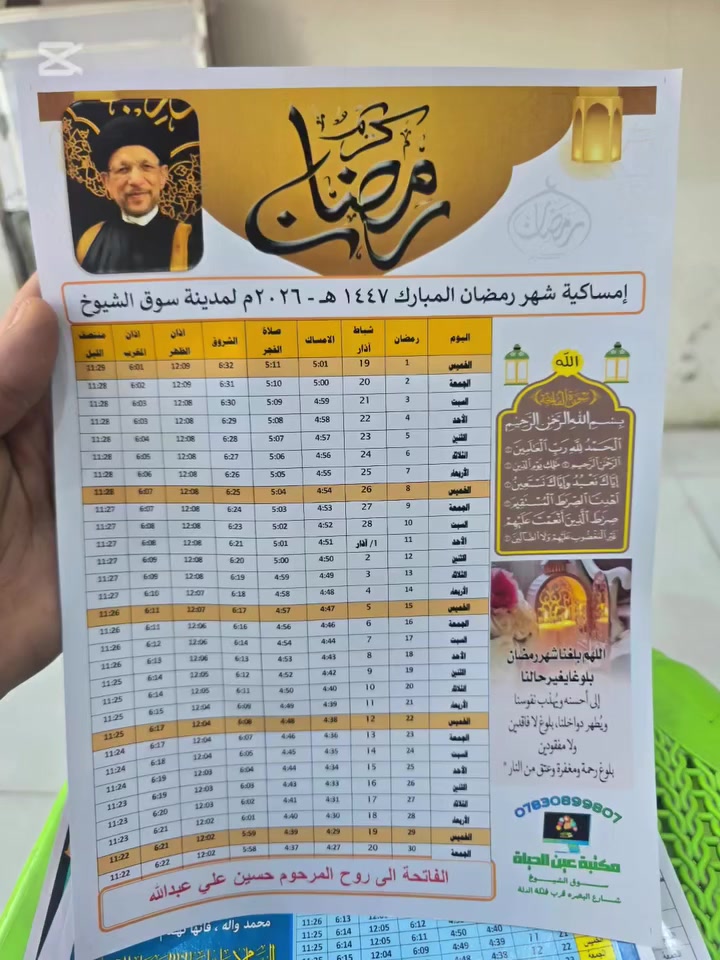 رمضان كريم
رمضان
إمساكية شهر رمضان المبارك ١٤٤٧ هـ - ٢٠٢٦م لمدينة سوق الشيوخ
اليوم رمضان شباط آذار الامساك صلاة الفجر الشروق اذان الظهر اذان المغرب منتصف الليل
الخميس 1 19 5:01 5:11 6:32 12:09 6:01 11:29
الجمعة 2 20 5:00 5:10 6:31 12:09 6:02 11:28
السبت 3 21 4:59 5:09 6:30 12:08 6:03 11:28
الأحد 4 22 4:58 5:08 6:29 12:08 6:03 11:28
الاثنين 5 23 4:57 5:07 6:28 12:08 6:04 11:28
الثلاثاء 6 24 4:56 5:06 6:27 12:08 6:05 11:28
الأربعاء 7 25 4:55 5:05 6:26 12:08 6:06 11:28
الخميس 8 26 4:54 5:04 6:25 12:08 6:07 11:28
الجمعة 9 27 4:53 5:03 6:24 12:08 6:07 11:27
السبت 10 28 4:52 5:02 6:23 12:08 6:08 11:27
الأحد 11 1/ آذار 4:51 5:01 6:21 12:08 6:08 11:27
الاثنين 12 2 4:50 5:00 6:20 12:08 6:09 11:27
الثلاثاء 13 3 4:49 4:59 6:19 12:08 6:09 11:27
الأربعاء 14 4 4:48 4:58 6:18 12:07 6:10 11:27
الخميس 15 5 4:47 4:57 6:17 12:07 6:11 11:26
الجمعة 16 6 4:46 4:56 6:16 12:06 6:11 11:26
السبت 17 7 4:44 4:54 6:14 12:06 6:12 11:26
الأحد 18 8 4:43 4:53 6:13 12:06 6:13 11:26
الاثنين 19 9 4:42 4:52 6:12 12:05 6:14 11:25
الثلاثاء 20 10 4:40 4:50 6:11 12:05 6:14 11:25
الأربعاء 21 11 4:39 4:49 6:09 12:04 6:15 11:25
الخميس 22 12 4:38 4:48 6:08 12:04 6:17 11:25
الجمعة 23 13 4:36 4:46 6:07 12:04 6:17 11:24
السبت 24 14 4:35 4:45 6:05 12:04 6:18 11:24
الأحد 25 15 4:34 4:44 6:04 12:03 6:19 11:24
الاثنين 26 16 4:33 4:43 6:03 12:03 6:19 11:23
الثلاثاء 27 17 4:31 4:41 6:02 12:03 6:20 11:23
الأربعاء 28 18 4:30 4:40 6:01 12:02 6:21 11:23
الخميس 29 19 4:29 4:39 5:59 12:02 6:21 11:22
الجمعة 30 20 4:27 4:37 5:58 12:02 6:22 11:22
الفاتحة الى روح المرحوم حسين علي عبدالله
الله
بسم الله الرحمن الرحيم
الحمد لله رب العالمين
الرحمن الرحيم ملك يوم الدين
إياك نعبد وإياك نستعين
اهدنا الصراط المستقيم
صراط الذين أنعمت عليهم
غير المغضوب عليهم ولا الضالين
اللهم بلغنا شهر رمضان
بلوغا يغير حالنا
إلى أحسنه ويُهذب نفوسنا
ويُطهر دواخلنا، بلوغ لا فاقدين
ولا مفقودين
بلوغ رحمة ومغفرة وعتق من النار"
07830899807
مكتبة عين الحياة
سوق الشيوخ
محمد واله ، فانها تهدم
11:26 6:13
11:25 6:14 12:05 6:12
11:25 6:14 12:05 6:11 4:50 4:40
11:25 6:15 12:04 6:09 4:49 4:39 11 21
4:48 4:38 12 22